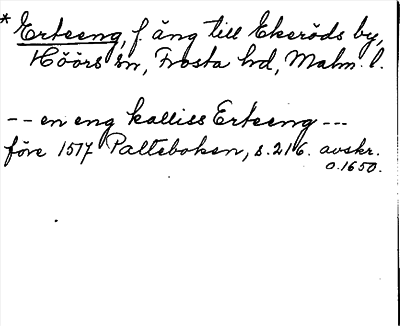 * Erteeng, f. äng till Ekeröds by,
Höörs sn, Frosta hd, Malm. l.
-- en eng kalliss Erteeng ---
före 1517 Palteboken, s. 216. avskr.
o. 1650.